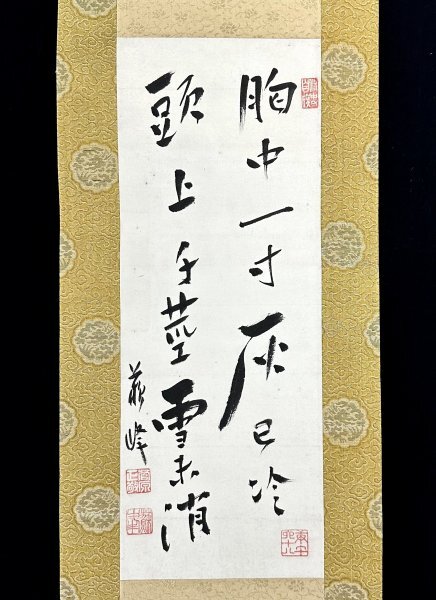 胸中一寸灰已冷
頭上千莖雪未消
蘇峰